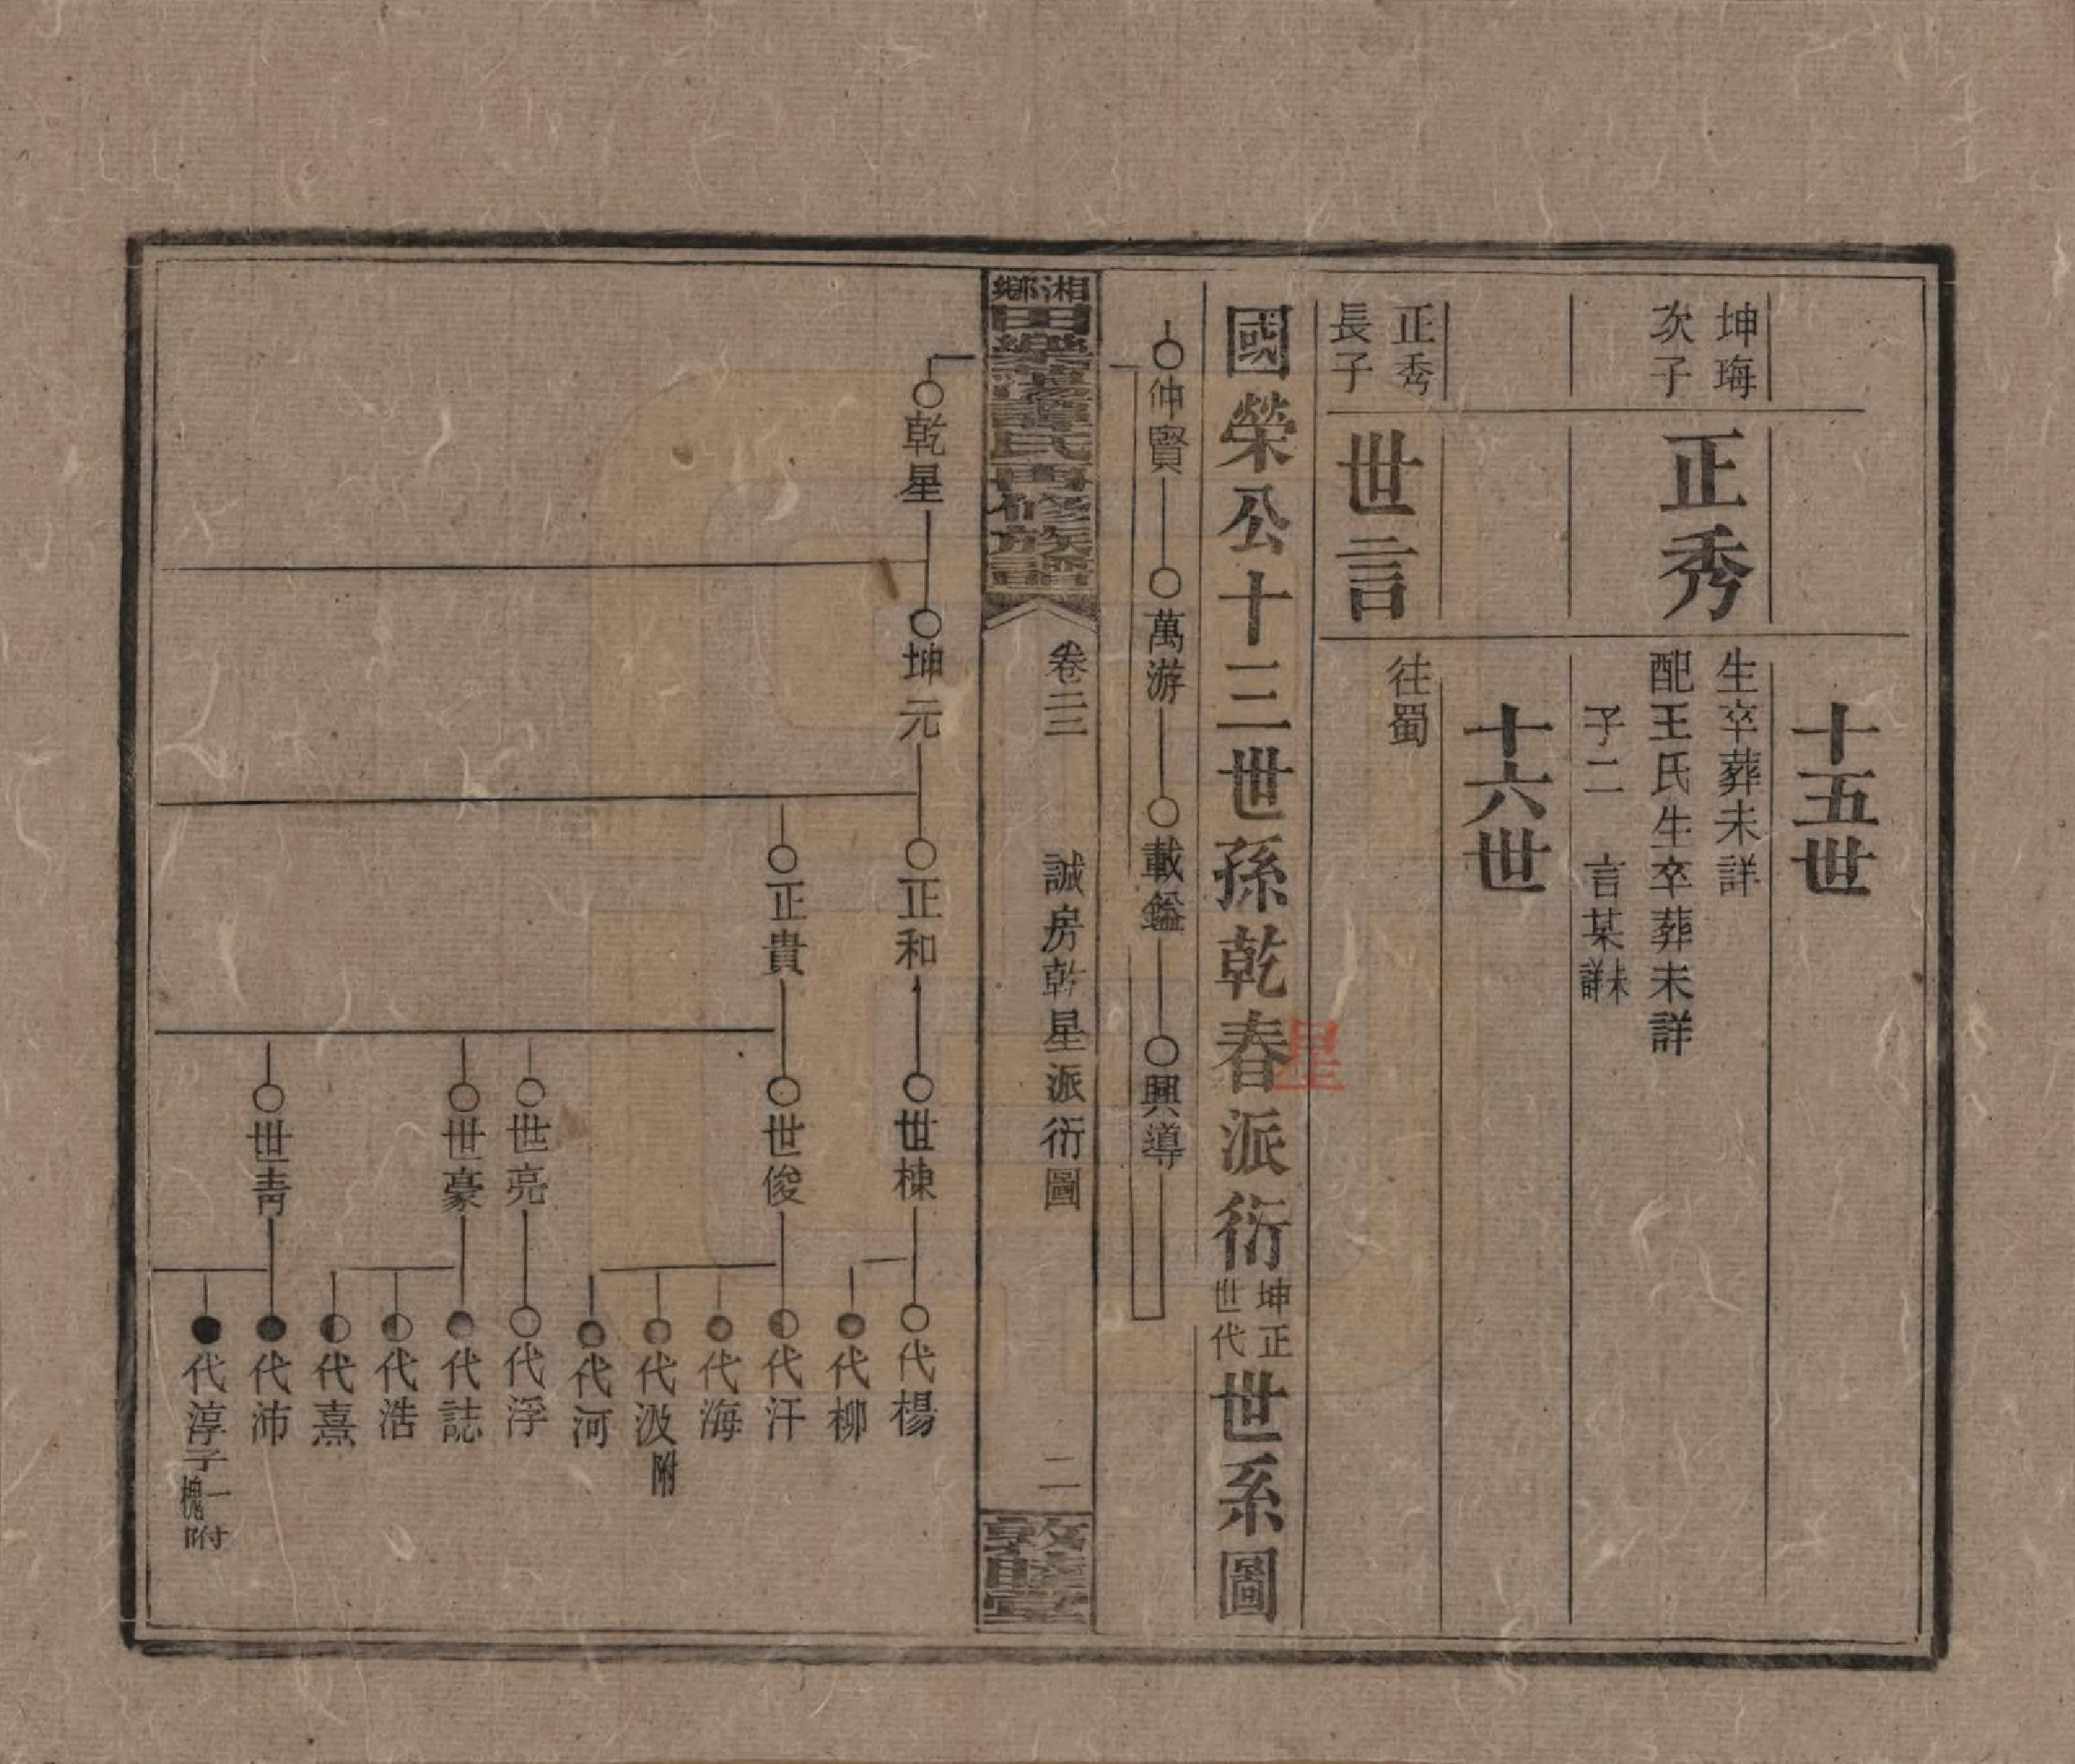 十五世
坤珻
次子
正秀
生卒葬未詳
配王氏生卒葬未詳
子二 言某未詳
十六世
正秀
長子
世言
往蜀
國榮公十三世孫乾春派衍坤正世代世系圖
星
仲賢
萬游
載鎰
興導
湘鄉
田樂譚氏再修族譜
卷二三
誠房乾星派衍圖
二
敦睦堂
乾星
坤元
正和
正貴
世棟
世俊
世亮
世豪
世青
代楊
代柳
代汗
代海
代汲附
代河
代浮
代誌
代浩
代熹
代沛
代淳子一槐附